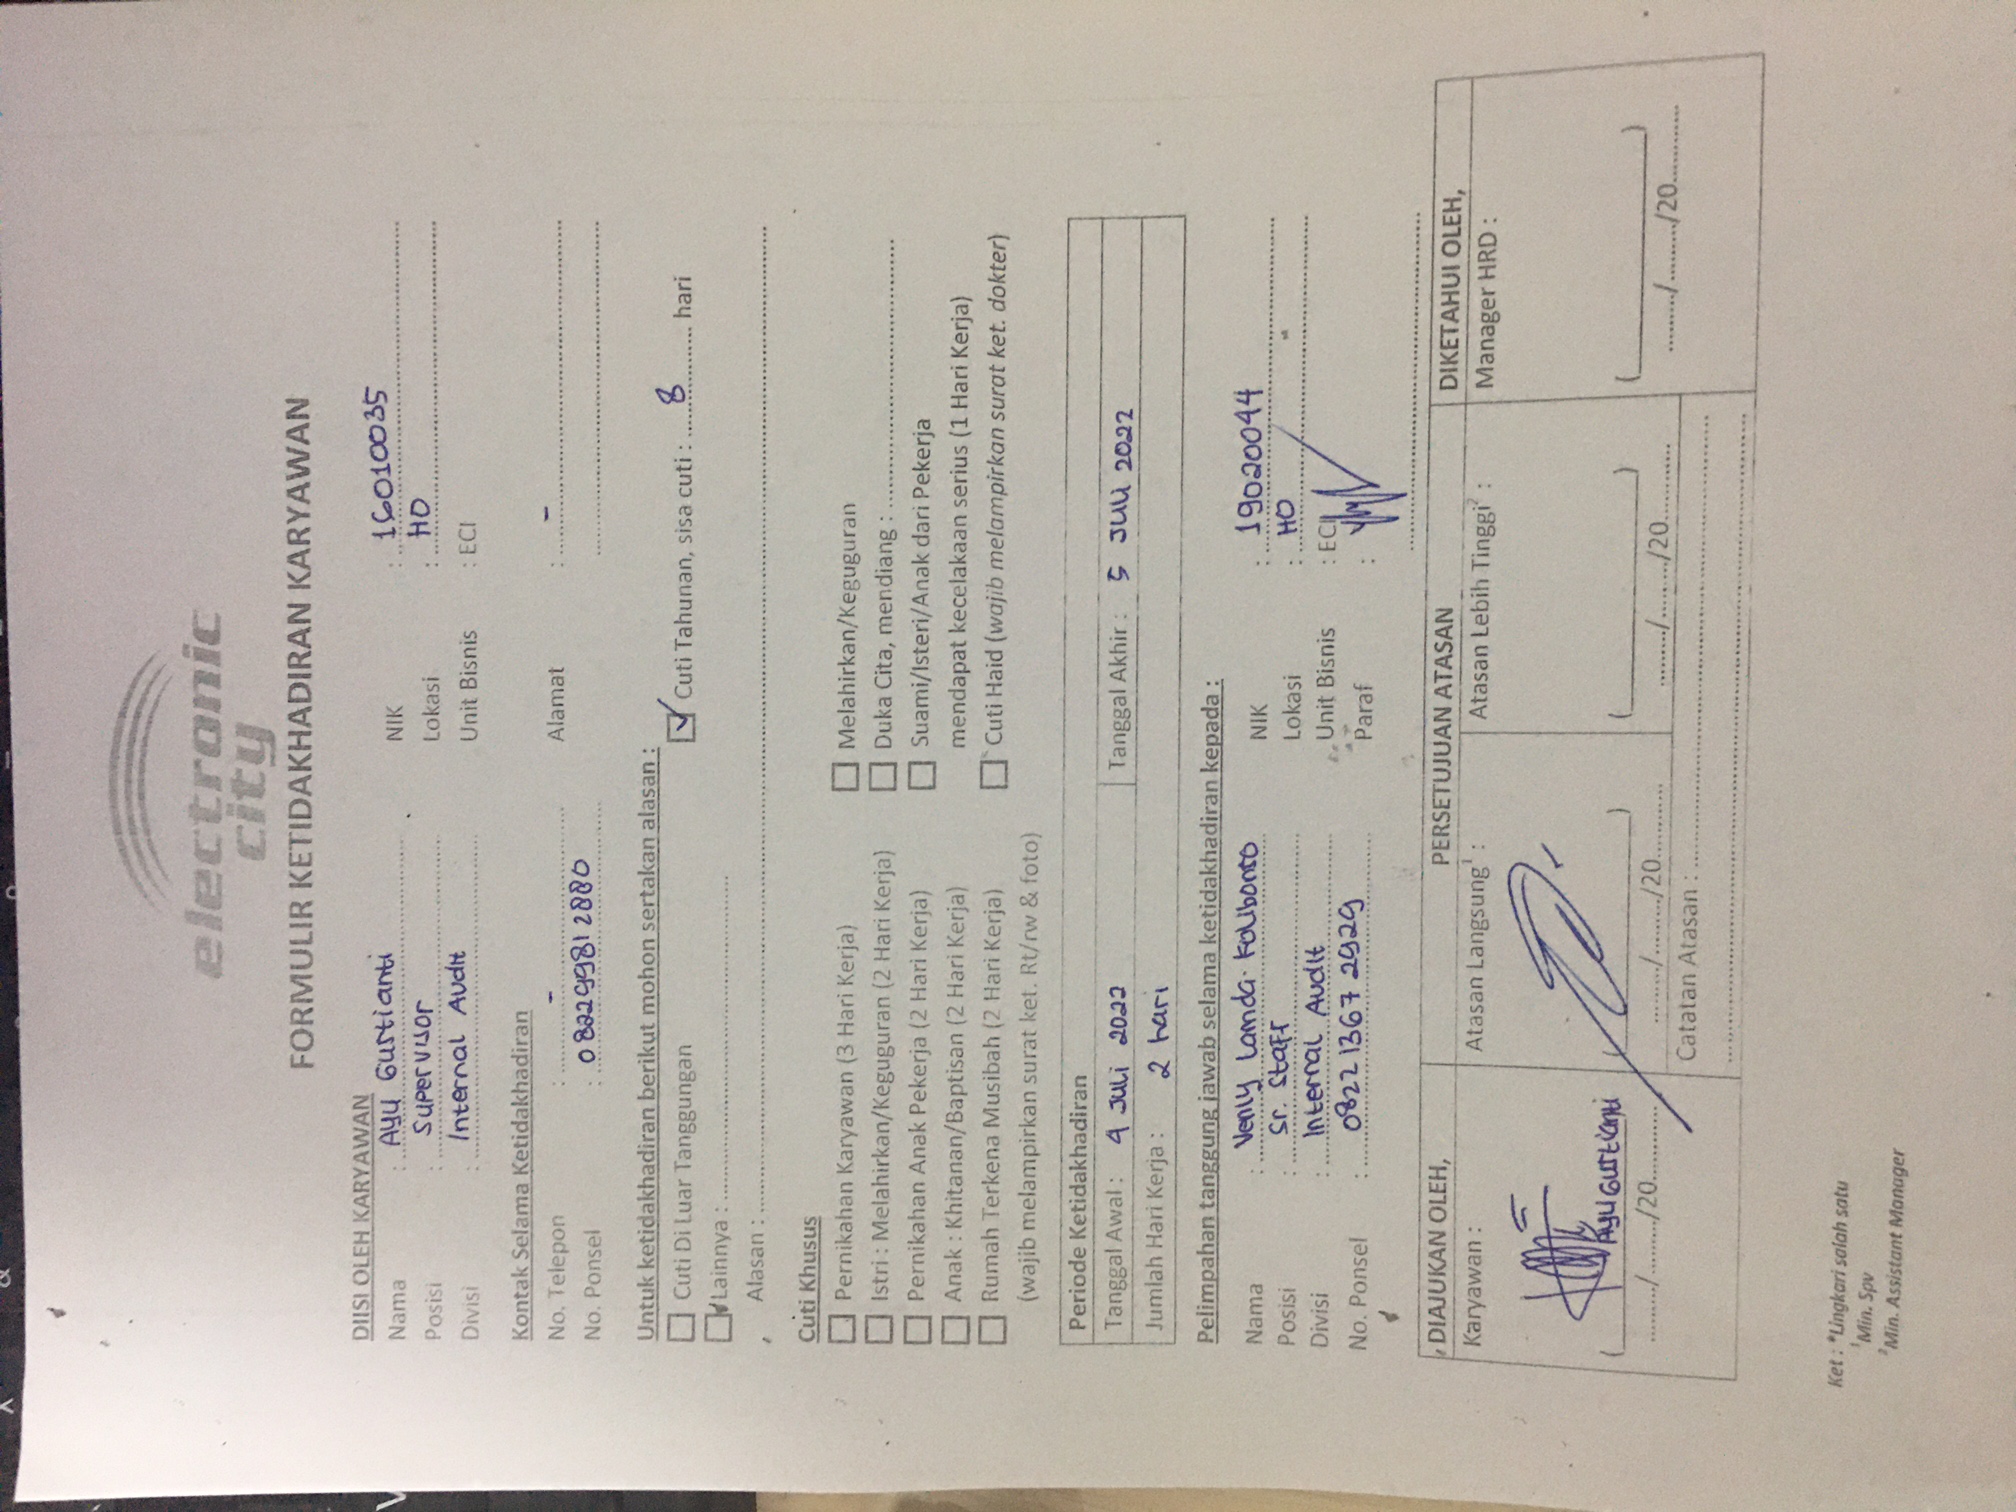 electronic
city
FORMULIR KETIDAKHADIRAN KARYAWAN
DIISI OLEH KARYAWAN
Nama : Ayu Gustianti NIK : 16010035
Posisi : Supervisor Lokasi : HO
Divisi : Internal Audit Unit Bisnis : ECI
Kontak Selama Ketidakhadiran
No. Telepon : - Alamat : -
No. Ponsel : 082299812880
Untuk ketidakhadiran berikut mohon sertakan alasan :
Cuti Di Luar Tanggungan Cuti Tahunan, sisa cuti : 8 hari
Lainnya :
Alasan :
Cuti Khusus
Pernikahan Karyawan (3 Hari Kerja) Melahirkan/Keguguran
Istri : Melahirkan/Keguguran (2 Hari Kerja) Duka Cita, mendiang :
Pernikahan Anak Pekerja (2 Hari Kerja) Suami/Isteri/Anak dari Pekerja
Anak : Khitanan/Baptisan (2 Hari Kerja) mendapat kecelakaan serius (1 Hari Kerja)
Rumah Terkena Musibah (2 Hari Kerja) Cuti Haid (wajib melampirkan surat ket. dokter)
(wajib melampirkan surat ket. Rt/rw & foto)
Periode Ketidakhadiran
Tanggal Awal : 4 Juli 2022 Tanggal Akhir : 5 Juli 2022
Jumlah Hari Kerja : 2 hari
Pelimpahan tanggung jawab selama ketidakhadiran kepada :
Nama : Venly Lamda NIK : 19020044
Posisi : Sr. Staff Lokasi : HO
Divisi : Internal Audit Unit Bisnis : ECI
No. Ponsel : 082213672929 Paraf :
DIAJUKAN OLEH, PERSETUJUAN ATASAN DIKETAHUI OLEH,
Karyawan : Atasan Langsung¹ : Atasan Lebih Tinggi² : Manager HRD :
(Ayu Gustianti) ( ) ( ) ( )
......./......./20.......... ......./......./20.......... ......./......./20.......... ......./......./20..........
Catatan Atasan :
Ket : *Lingkari salah satu
¹Min. Spv
²Min. Assistant Manager